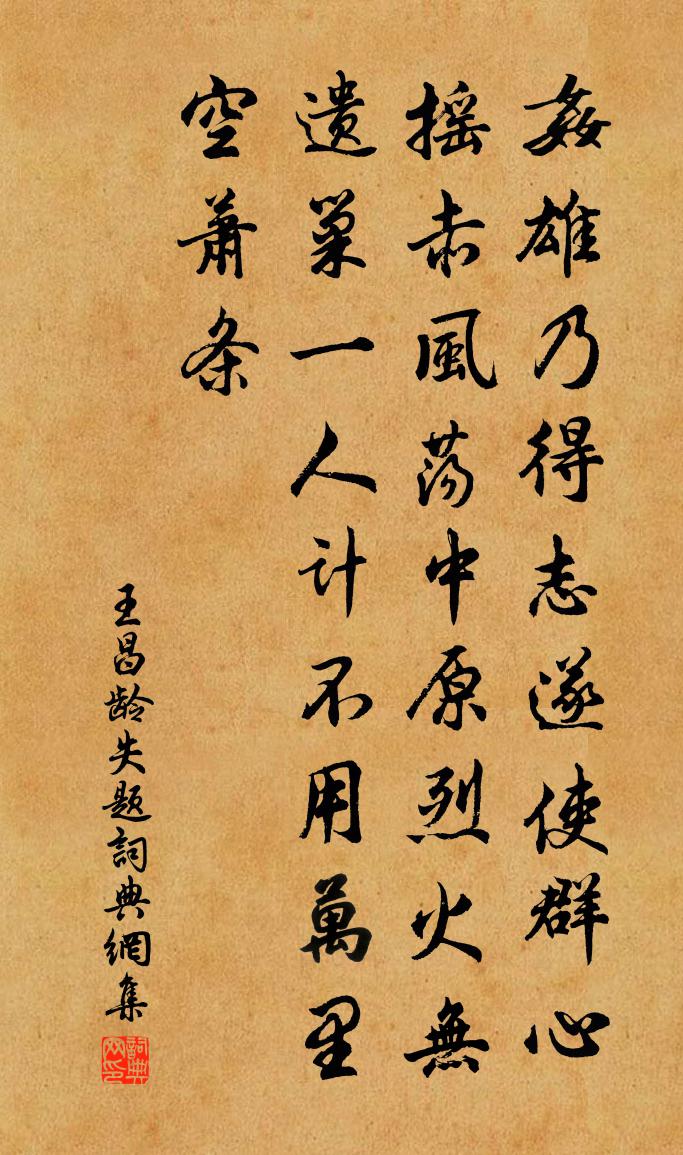 姦雄乃得志遂使群心
摇赤風荡中原烈火無
遗巢一人计不用萬里
空萧条
王昌龄失题詞典網集
詞典网印